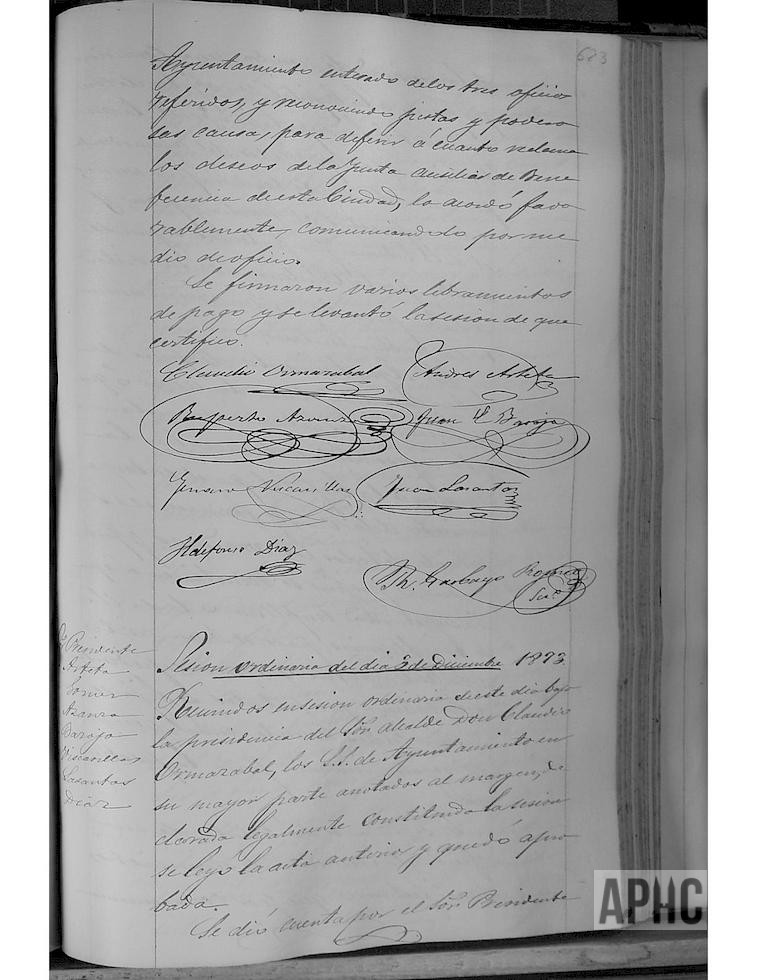 683
Ayuntamiento enterado delos tres oficios
referidos, y reconociendo justas y podero
sas causas, para deferir á cuanto reclama
los deseos dela Junta Auxiliar de Bene
ficencia de esta Ciudad, lo acordó favo
rablemente, comunicandolo por me
dio de oficio.
Se firmaron varios libramientos
de pago y se levantó la sesion de que
certifico.
Claudio Ormazabal Andres Arteta
Ruperto Azanza Juan M Baroja
Genaro Viscarillas Juan Lasantas
Ildefonso Diaz
Th. Garbayo
Scrº.
Sr Presidente
Arteta
Azanza
Baroja
Viscarillas
Lasantas
Diaz
Sesion ordinaria del dia 3 de Diciembre 1873
Reunidos en sesion ordinaria de este dia bajo
la presidencia del Sor. Alcalde Don Claudio
Ormazabal, los S.S. de Ayuntamiento en
su mayor parte anotados al margen, de
clarada legalmente constituida la sesion
se leyó la acta anterior y quedó apro
bada.
Se dió cuenta por el Sor. Presidente
APHC